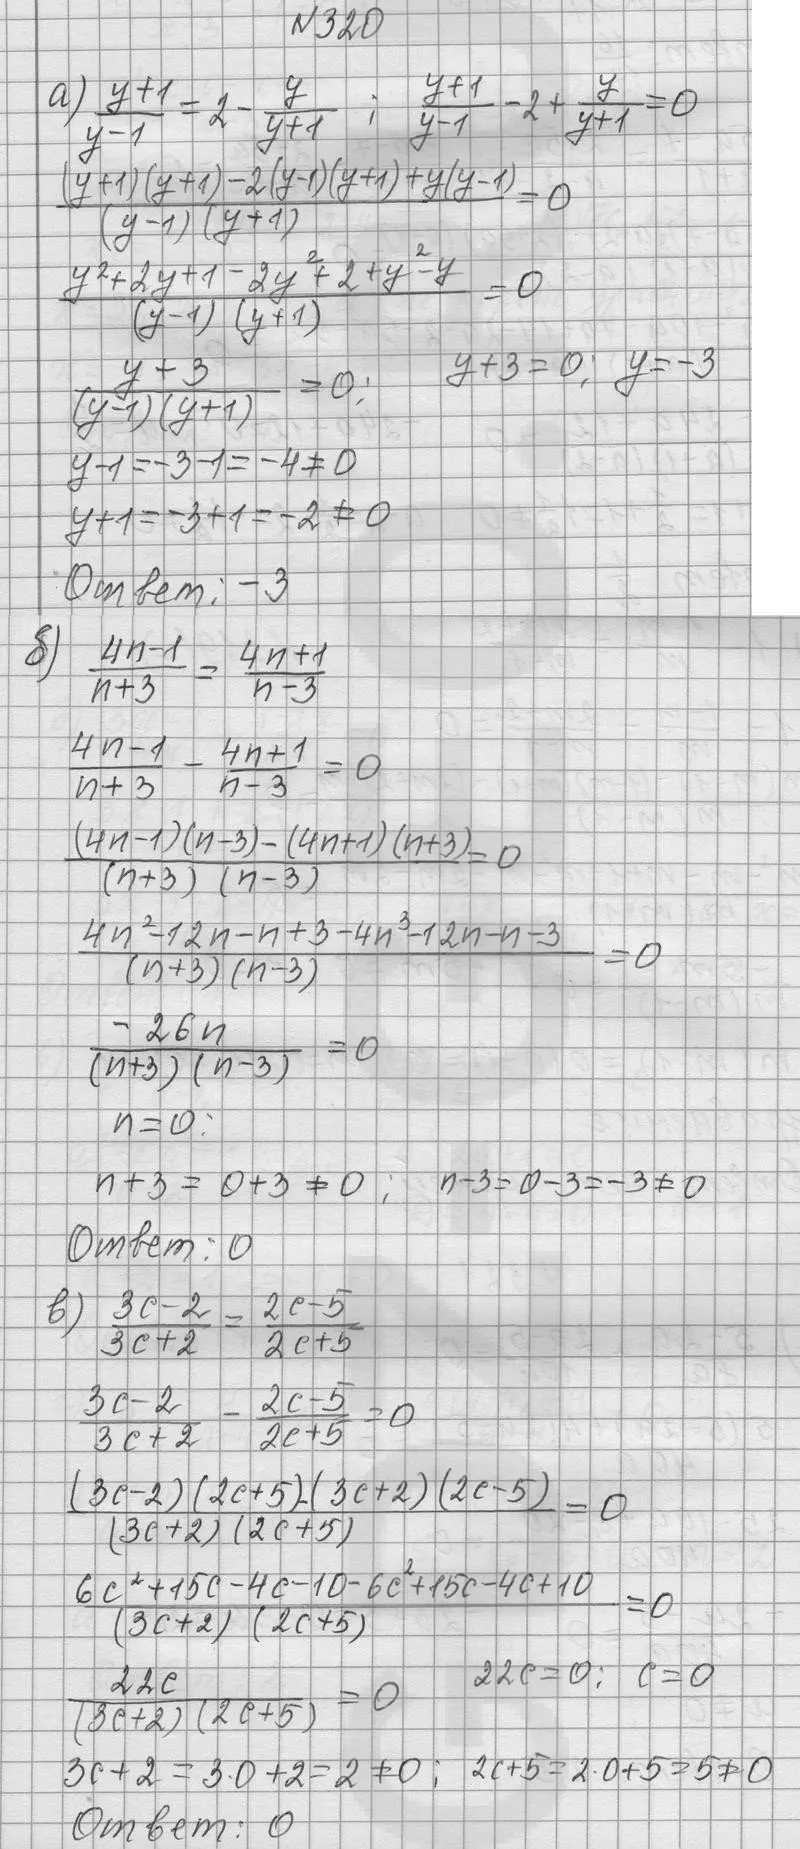 N320
а) (y+1)/(y-1) = 2 - y/(y+1) ; (y+1)/(y-1) - 2 + y/(y+1) = 0
((y+1)(y+1) - 2(y-1)(y+1) + y(y-1))/((y-1)(y+1)) = 0
(y² + 2y + 1 - 2y² + 2 + y² - y)/((y-1)(y+1)) = 0
(y+3)/((y-1)(y+1)) = 0; y+3 = 0; y = -3
y-1 = -3-1 = -4 ≠ 0
y+1 = -3+1 = -2 ≠ 0
Ответ: -3
б) (4n-1)/(n+3) = (4n+1)/(n-3)
(4n-1)/(n+3) - (4n+1)/(n-3) = 0
((4n-1)(n-3) - (4n+1)(n+3))/((n+3)(n-3)) = 0
(4n² - 12n - n + 3 - 4n³ - 12n - n - 3)/((n+3)(n-3)) = 0
(-26n)/((n+3)(n-3)) = 0
n = 0:
n+3 = 0+3 ≠ 0 ; n-3 = 0-3 = -3 ≠ 0
Ответ: 0
в) (3c-2)/(3c+2) = (2c-5)/(2c+5)
(3c-2)/(3c+2) - (2c-5)/(2c+5) = 0
((3c-2)(2c+5) - (3c+2)(2c-5))/((3c+2)(2c+5)) = 0
(6c² + 15c - 4c - 10 - 6c² + 15c - 4c + 10)/((3c+2)(2c+5)) = 0
22c/((3c+2)(2c+5)) = 0 22c = 0; c = 0
3c+2 = 3·0+2 = 2 ≠ 0; 2c+5 = 2·0+5 = 5 ≠ 0
Ответ: 0